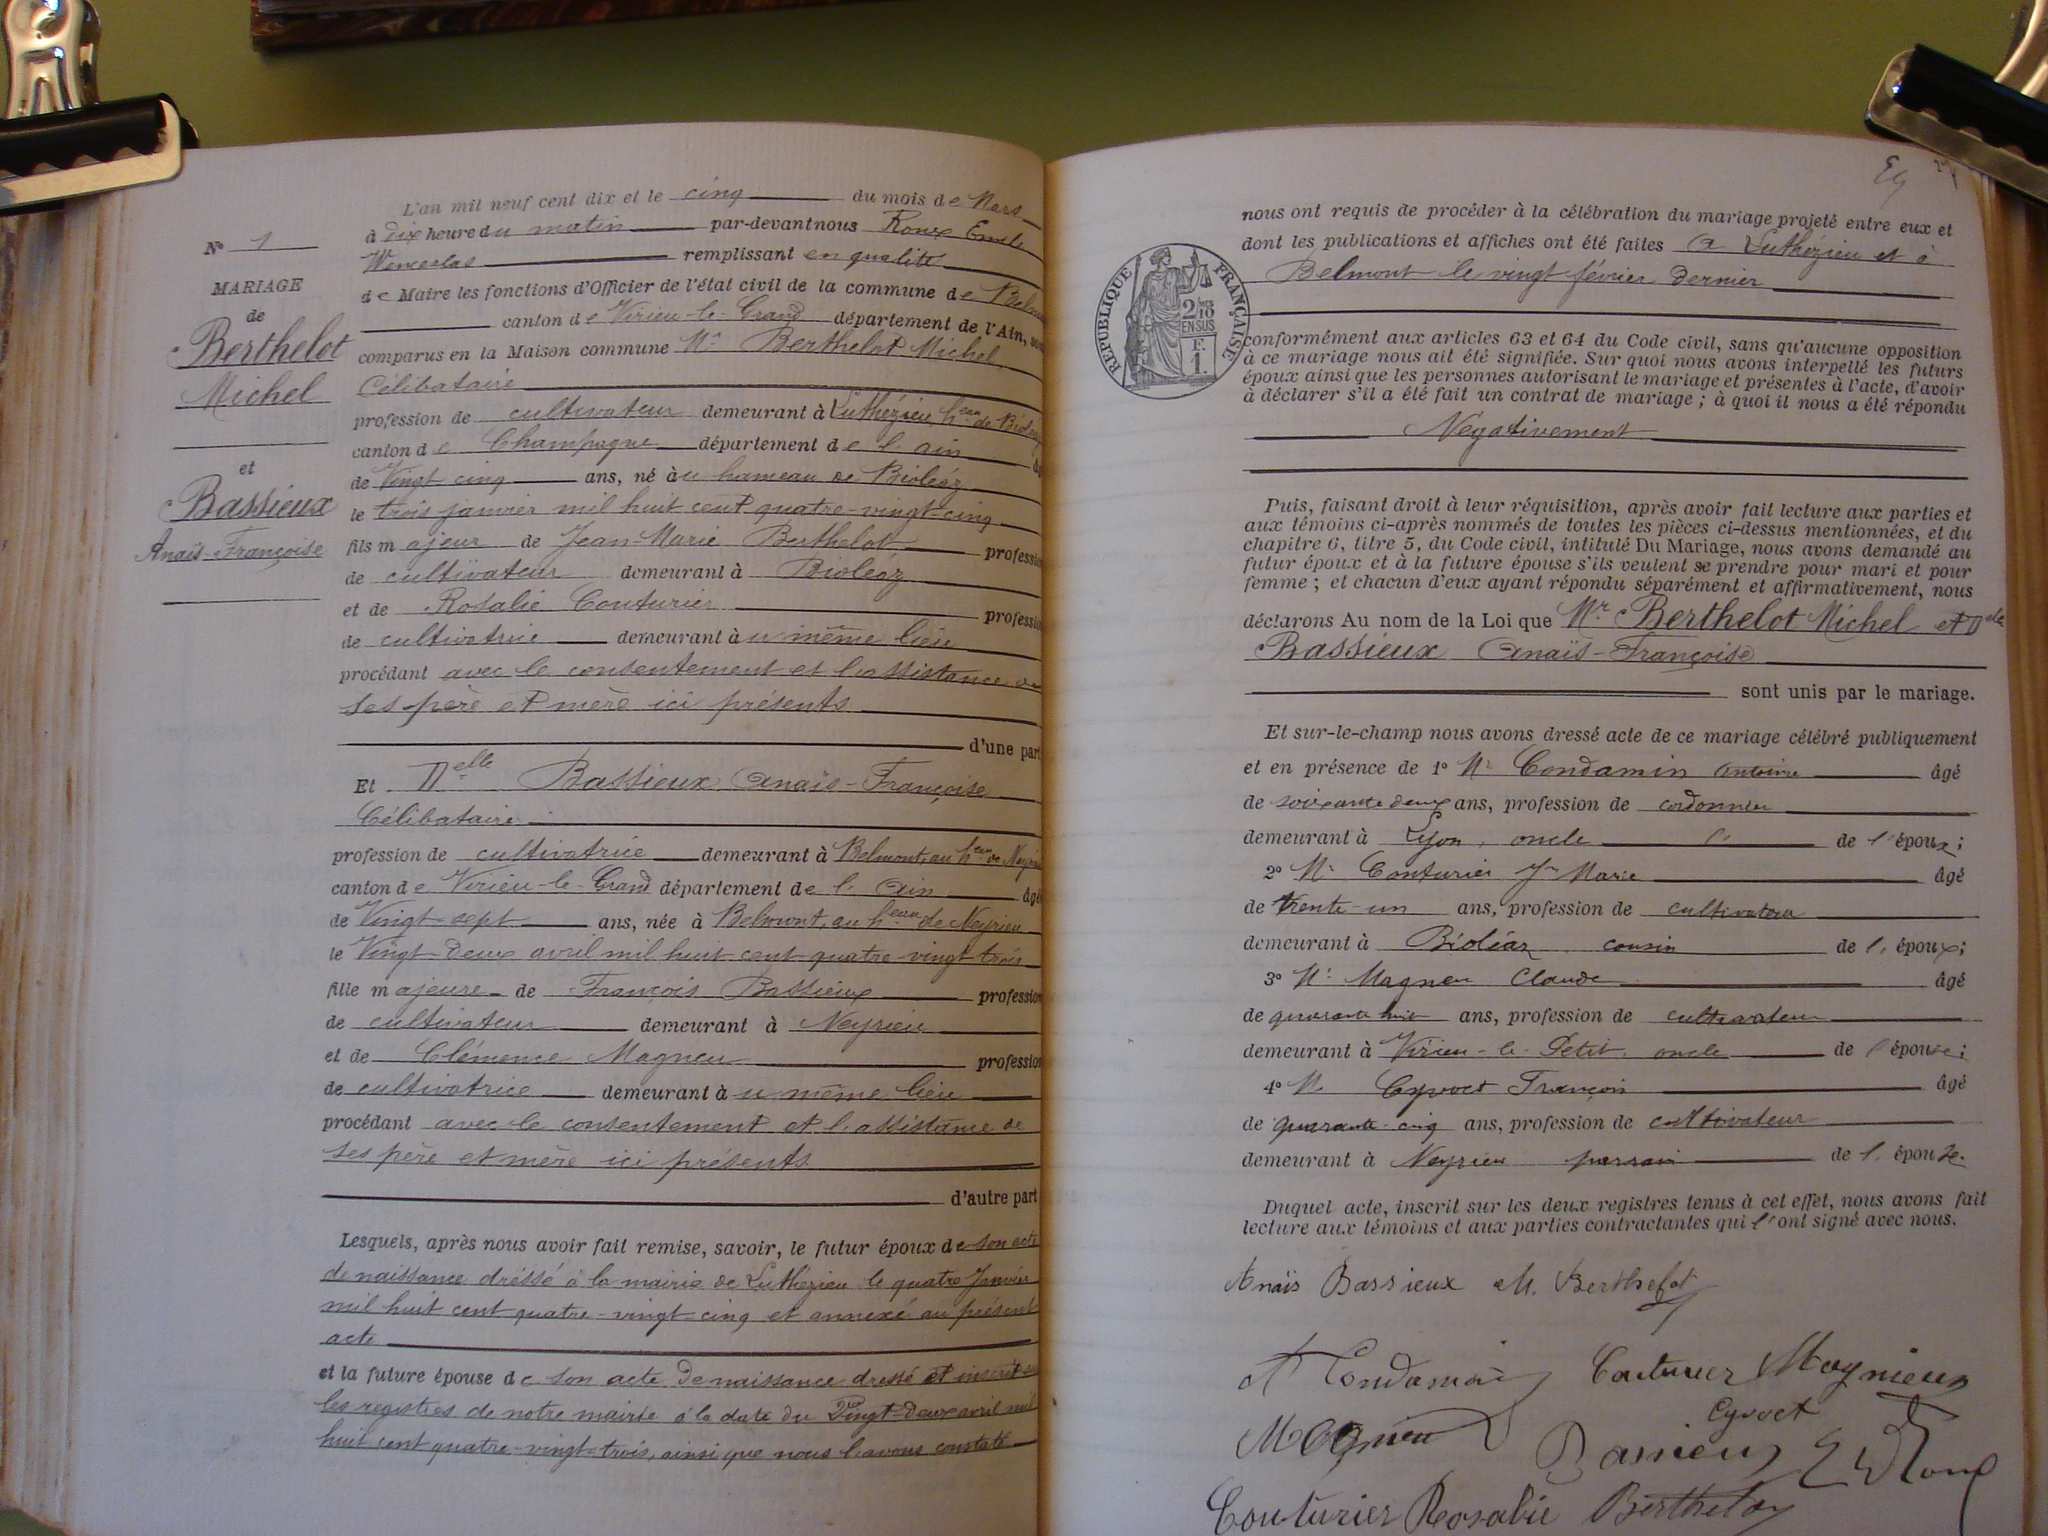 L'an mil neuf cent dix et le cinq du mois de Mars
à dix heure du matin par-devant nous Roux Emile
Wenceslas remplissant en qualité
de Maire les fonctions d'Officier de l'état civil de la commune de Belm
canton de Virieu-le-Grand département de l'Ain, sont
comparus en la Maison commune Mr Berthelot Michel
Célibataire
profession de cultivateur demeurant à Luthézieu, heau de Bioléaz
canton de Champagne département de l'ain
de Vingt cinq ans, né au hameau de Bioléaz
le trois janvier mil huit cent quatre-vingt-cinq
fils majeur de Jean-Marie Berthelot profession
de cultivateur demeurant à Bioléaz
et de Rosalie Couturier profession
de cultivatrice demeurant au même lieu
procédant avec le consentement et l'assistance de
ses père et mère ici présents
d'une part
Et Delle Bassieux Anaïs-Françoise
Célibataire
profession de cultivatrice demeurant à Belmont, au heau de Neyrieu
canton de Virieu-le-Grand département de l'Ain âgé
de Vingt-sept ans, née à Belmont, au heau de Neyrieu
le Vingt-deux avril mil huit cent quatre-vingt trois
fille majeure de François Bassieux profession
de cultivateur demeurant à Neyrieu
et de Clémence Magnieu profession
de cultivatrice demeurant au même lieu
procédant avec le consentement et l'assistance de
ses père et mère ici présents
d'autre part
Lesquels, après nous avoir fait remise, savoir, le futur époux de son acte
de naissance dréssé à la mairie de Luthézieu le quatre Janvier
mil huit cent quatre-vingt-cinq et annexé au présent
acte
et la future épouse de son acte de naissance dressé et inscrit
les registres de notre mairie à la date du Vingt-deux avril mil
huit cent quatre-vingt-trois, ainsi que nous l'avons constaté
No 1
MARIAGE
de
Berthelot
Michel
et
Bassieux
Anaïs-Françoise
nous ont requis de procéder à la célébration du mariage projeté entre eux et
dont les publications et affiches ont été faites à Luthézieu et à
Belmont le vingt février dernier
RÉPUBLIQUE FRANÇAISE
2/10
EN SUS
F.
1.
conformément aux articles 63 et 64 du Code civil, sans qu'aucune opposition
à ce mariage nous ait été signifiée. Sur quoi nous avons interpellé les futurs
époux ainsi que les personnes autorisant le mariage et présentes à l'acte, d'avoir
à déclarer s'il a été fait un contrat de mariage ; à quoi il nous a été répondu
Négativement
Puis, faisant droit à leur réquisition, après avoir fait lecture aux parties et
aux témoins ci-après nommés de toutes les pièces ci-dessus mentionnées, et du
chapitre 6, titre 5, du Code civil, intitulé Du Mariage, nous avons demandé au
futur époux et à la future épouse s'ils veulent se prendre pour mari et pour
femme ; et chacun d'eux ayant répondu séparément et affirmativement, nous
déclarons Au nom de la Loi que Mr Berthelot Michel et Delle
Bassieux Anaïs-Françoise
sont unis par le mariage.
Et sur-le-champ nous avons dressé acte de ce mariage célébré publiquement
et en présence de 1° Mr Condamin Antoine âgé
de soixante deux ans, profession de cordonnier
demeurant à Lyon, oncle de l'époux;
2° Mr Couturier Jn Marie âgé
de trente-un ans, profession de cultivateur
demeurant à Bioléaz cousin de l'époux;
3° Mr Magnieu Claude âgé
de quarante huit ans, profession de cultivateur
demeurant à Virieu-le-Petit, oncle de l'épouse;
4° Mr Cyvoct François âgé
de quarante-cinq ans, profession de cultivateur
demeurant à Neyrieu parrain de l'épouse.
Duquel acte, inscrit sur les deux registres tenus à cet effet, nous avons fait
lecture aux témoins et aux parties contractantes qui l'ont signé avec nous.
Anaïs Bassieux M. Berthelot
A Condamin Couturier Magnieux
Magnieu Cyvoct
Bassieux E Roux
Couturier Rosalie Berthelot